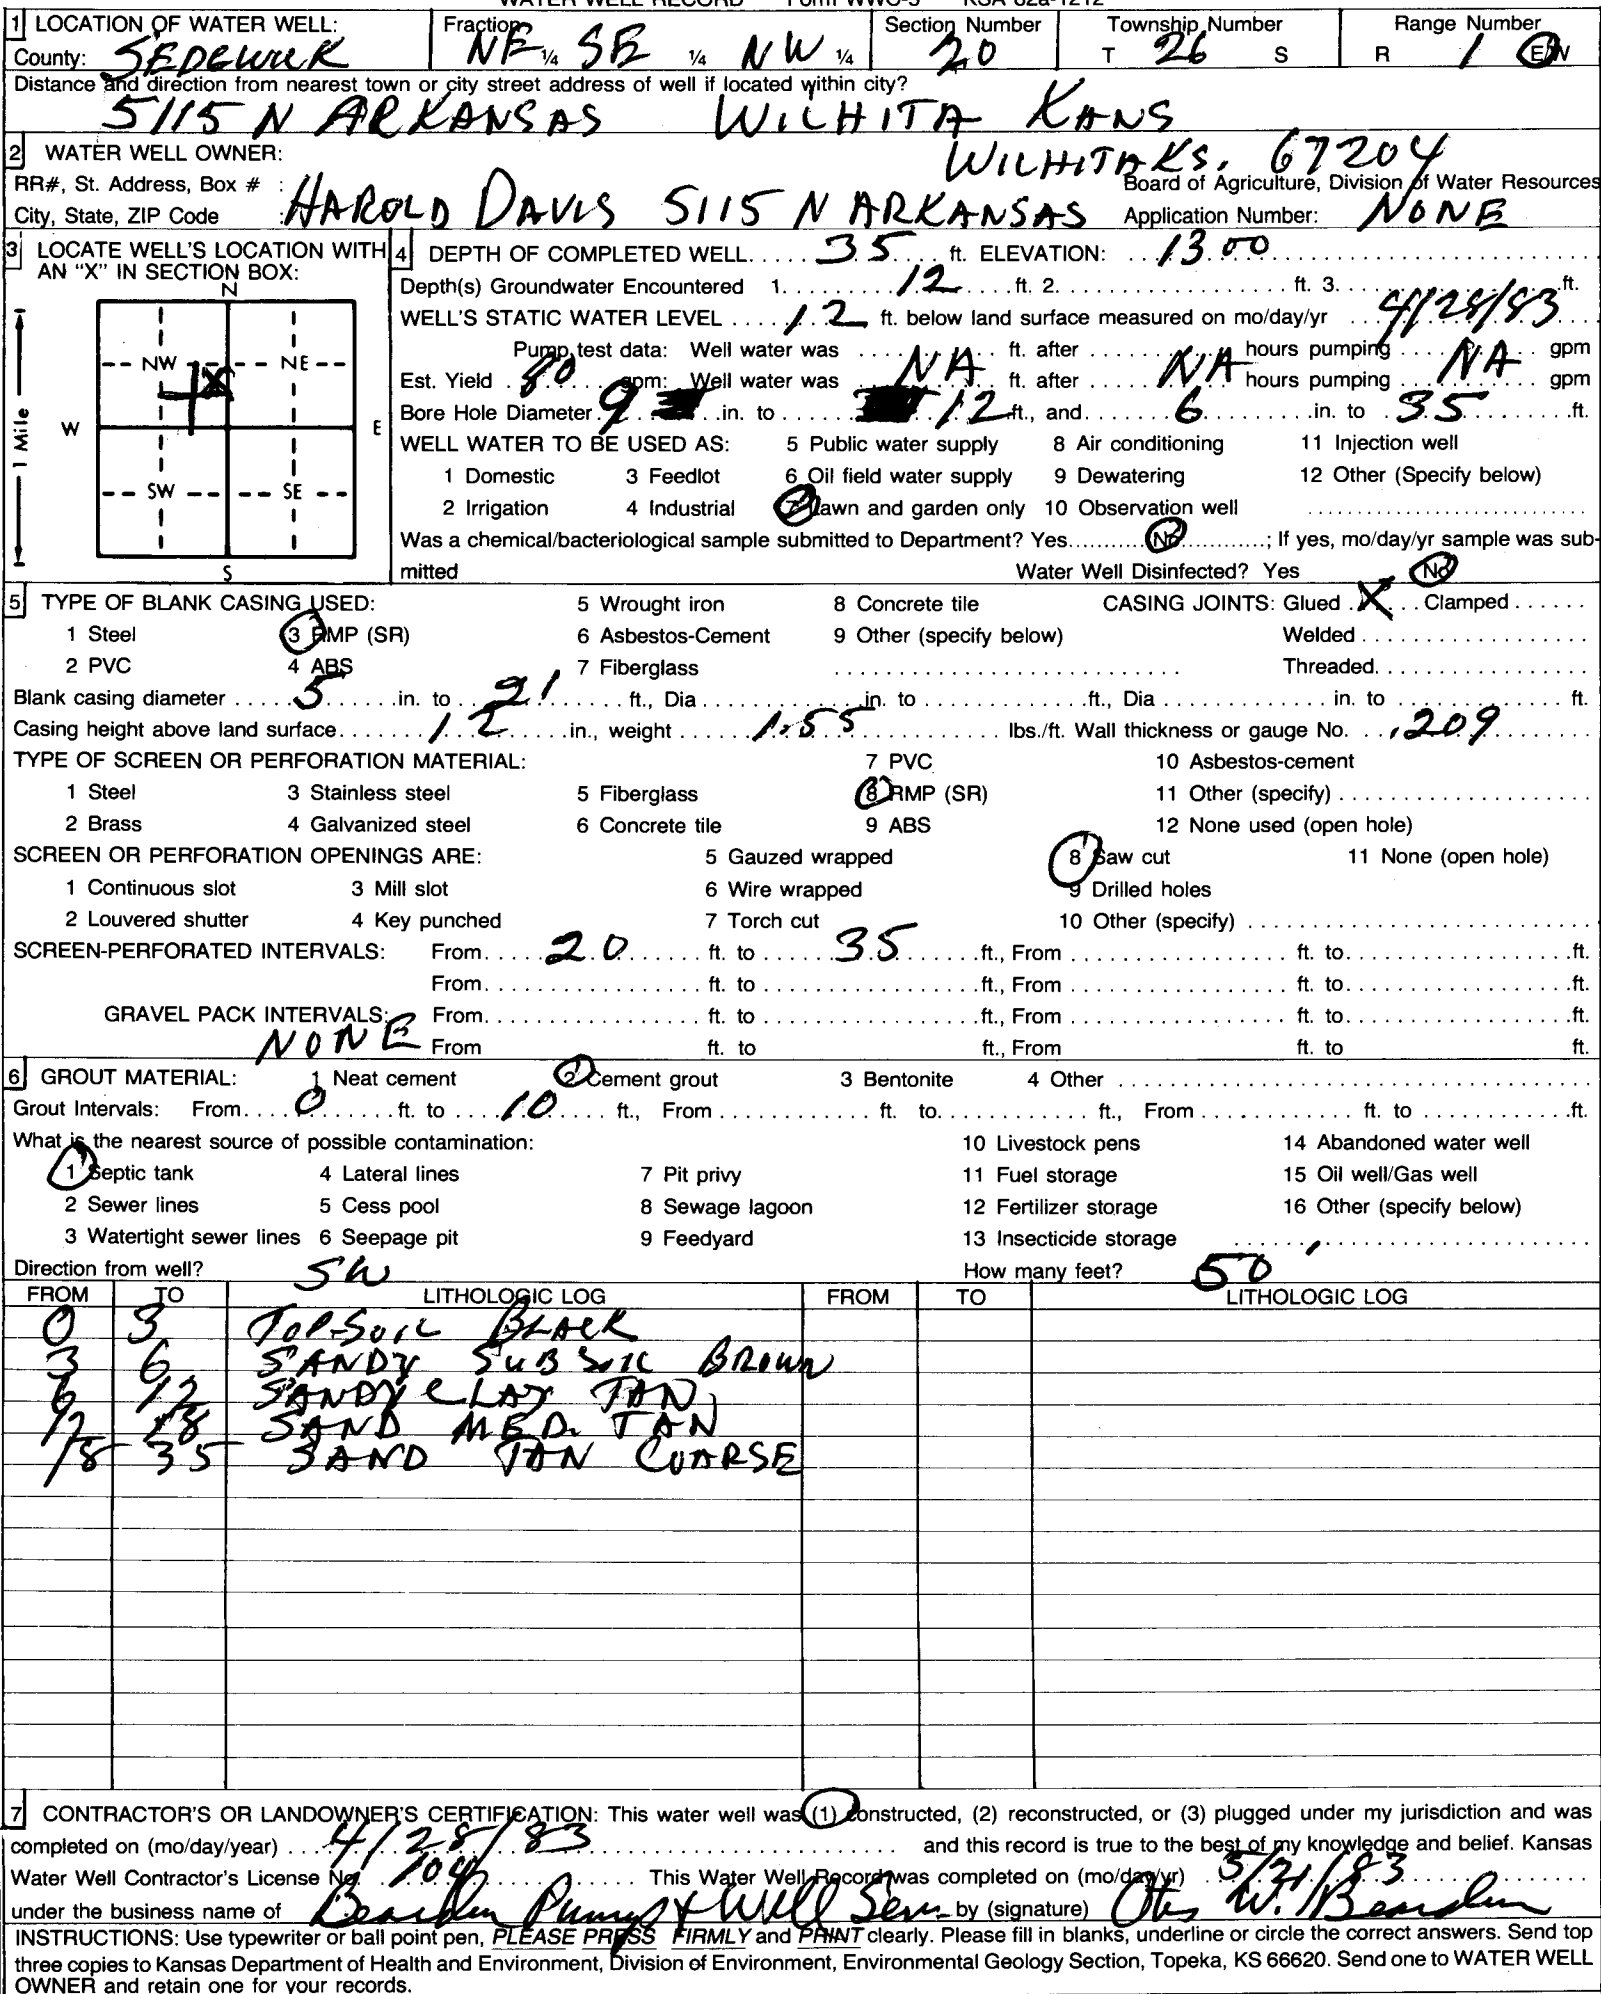 WATER WELL RECORD Form WWC-5 KSA 82a-1212
1 LOCATION OF WATER WELL: Fraction Section Number Township Number Range Number
County: SEDGWICK NE ¼ SE ¼ NW ¼ 20 T 26 S R 1 E/W
Distance and direction from nearest town or city street address of well if located within city?
5115 N ARKANSAS WILHITA KANS
2 WATER WELL OWNER: WILHITA KS. 67204
RR#, St. Address, Box # : Board of Agriculture, Division of Water Resources
City, State, ZIP Code : HAROLD DAVIS 5115 N ARKANSAS Application Number: NONE
3 LOCATE WELL'S LOCATION WITH AN "X" IN SECTION BOX:
N
NW NE
W E
SW SE
S
1 Mile
4 DEPTH OF COMPLETED WELL..... 35 ..... ft. ELEVATION: ... 1300
Depth(s) Groundwater Encountered 1. 12 ft. 2. ft. 3. ft.
WELL'S STATIC WATER LEVEL .... 12 ft. below land surface measured on mo/day/yr 4/28/83
Pump test data: Well water was NA ft. after NA hours pumping NA gpm
Est. Yield 80 gpm: Well water was ft. after hours pumping gpm
Bore Hole Diameter 9 in. to 12 ft., and 6 in. to 35 ft.
WELL WATER TO BE USED AS: 5 Public water supply 8 Air conditioning 11 Injection well
1 Domestic 3 Feedlot 6 Oil field water supply 9 Dewatering 12 Other (Specify below)
2 Irrigation 4 Industrial 7 Lawn and garden only 10 Observation well
Was a chemical/bacteriological sample submitted to Department? Yes........ No ..........; If yes, mo/day/yr sample was sub-
mitted Water Well Disinfected? Yes No
5 TYPE OF BLANK CASING USED: 5 Wrought iron 8 Concrete tile CASING JOINTS: Glued X Clamped
1 Steel 3 RMP (SR) 6 Asbestos-Cement 9 Other (specify below) Welded
2 PVC 4 ABS 7 Fiberglass Threaded
Blank casing diameter 5 in. to 21 ft., Dia in. to ft., Dia in. to ft.
Casing height above land surface 12 in., weight 1.55 lbs./ft. Wall thickness or gauge No. .209
TYPE OF SCREEN OR PERFORATION MATERIAL: 7 PVC 10 Asbestos-cement
1 Steel 3 Stainless steel 5 Fiberglass 8 RMP (SR) 11 Other (specify)
2 Brass 4 Galvanized steel 6 Concrete tile 9 ABS 12 None used (open hole)
SCREEN OR PERFORATION OPENINGS ARE: 5 Gauzed wrapped 8 Saw cut 11 None (open hole)
1 Continuous slot 3 Mill slot 6 Wire wrapped 9 Drilled holes
2 Louvered shutter 4 Key punched 7 Torch cut 10 Other (specify)
SCREEN-PERFORATED INTERVALS: From 20 ft. to 35 ft., From ft. to ft.
From ft. to ft., From ft. to ft.
GRAVEL PACK INTERVALS: From ft. to ft., From ft. to ft.
NONE From ft. to ft., From ft. to ft.
6 GROUT MATERIAL: 1 Neat cement 2 Cement grout 3 Bentonite 4 Other
Grout Intervals: From 0 ft. to 10 ft., From ft. to ft., From ft. to ft.
What is the nearest source of possible contamination: 10 Livestock pens 14 Abandoned water well
1 Septic tank 4 Lateral lines 7 Pit privy 11 Fuel storage 15 Oil well/Gas well
2 Sewer lines 5 Cess pool 8 Sewage lagoon 12 Fertilizer storage 16 Other (specify below)
3 Watertight sewer lines 6 Seepage pit 9 Feedyard 13 Insecticide storage
Direction from well? SW How many feet? 50'
FROM TO LITHOLOGIC LOG FROM TO LITHOLOGIC LOG
0 3 TOP-SOIL BLACK
3 6 SANDY SUBSOIL BROWN
6 12 SANDY CLAY TAN
12 18 SAND MED. TAN
18 35 SAND TAN COARSE
7 CONTRACTOR'S OR LANDOWNER'S CERTIFICATION: This water well was (1) constructed, (2) reconstructed, or (3) plugged under my jurisdiction and was
completed on (mo/day/year) 4/28/83 and this record is true to the best of my knowledge and belief. Kansas
Water Well Contractor's License No. 104 This Water Well Record was completed on (mo/day/yr) 5/21/83
under the business name of Bearden Pump & Well Serv by (signature) Otis W. Bearden
INSTRUCTIONS: Use typewriter or ball point pen, PLEASE PRESS FIRMLY and PRINT clearly. Please fill in blanks, underline or circle the correct answers. Send top
three copies to Kansas Department of Health and Environment, Division of Environment, Environmental Geology Section, Topeka, KS 66620. Send one to WATER WELL
OWNER and retain one for your records.